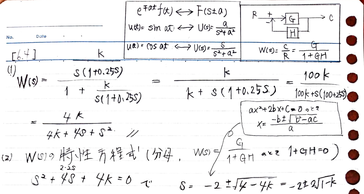 e^∓at f(t) ⟷ F(s±a)
u(t) = sin at ⟷ U(s) = a/(s²+a²)
u(t) = cos at ⟷ U(s) = s/(s²+a²)
R + G C
H
W(s) = C/R = G/(1+GH)
No.
Date
[6.4]
(1)
W(s) = (k/(s(1+0.25s)))/(1 + k/(s(1+0.25s))) = k/(k + s(1+0.25s)) = 100k/(100k+s(100+25s))
= 4k/(4k+4s+s²) //
ax²+2bx+C=0
x = (-b±√(b²-ac))/a
(2) W(s) 特性方程式 (分母, W(s) = G/(1+GH) 1+GH=0)
s²+4s+4k=0 s = -2±√(4-4k) = -2±2√(1-k)